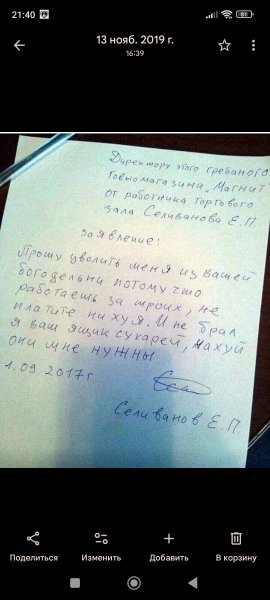 21:40
81
13 нояб. 2019 г.
16:39
Директору этого гребаного
Говномагазина „Магнит"
от работника Торгового
зала Селиванова Е.П
заявление:
Прошу уволить меня из вашей
богодельни потому что
работаешь за троих, не
платите ни хуя. И не брал
я ваш ящик сухарей, нахуй
они мне нужны
1.09 2017г
Селиванов Е.П.
Поделиться
Изменить
Добавить
В корзину